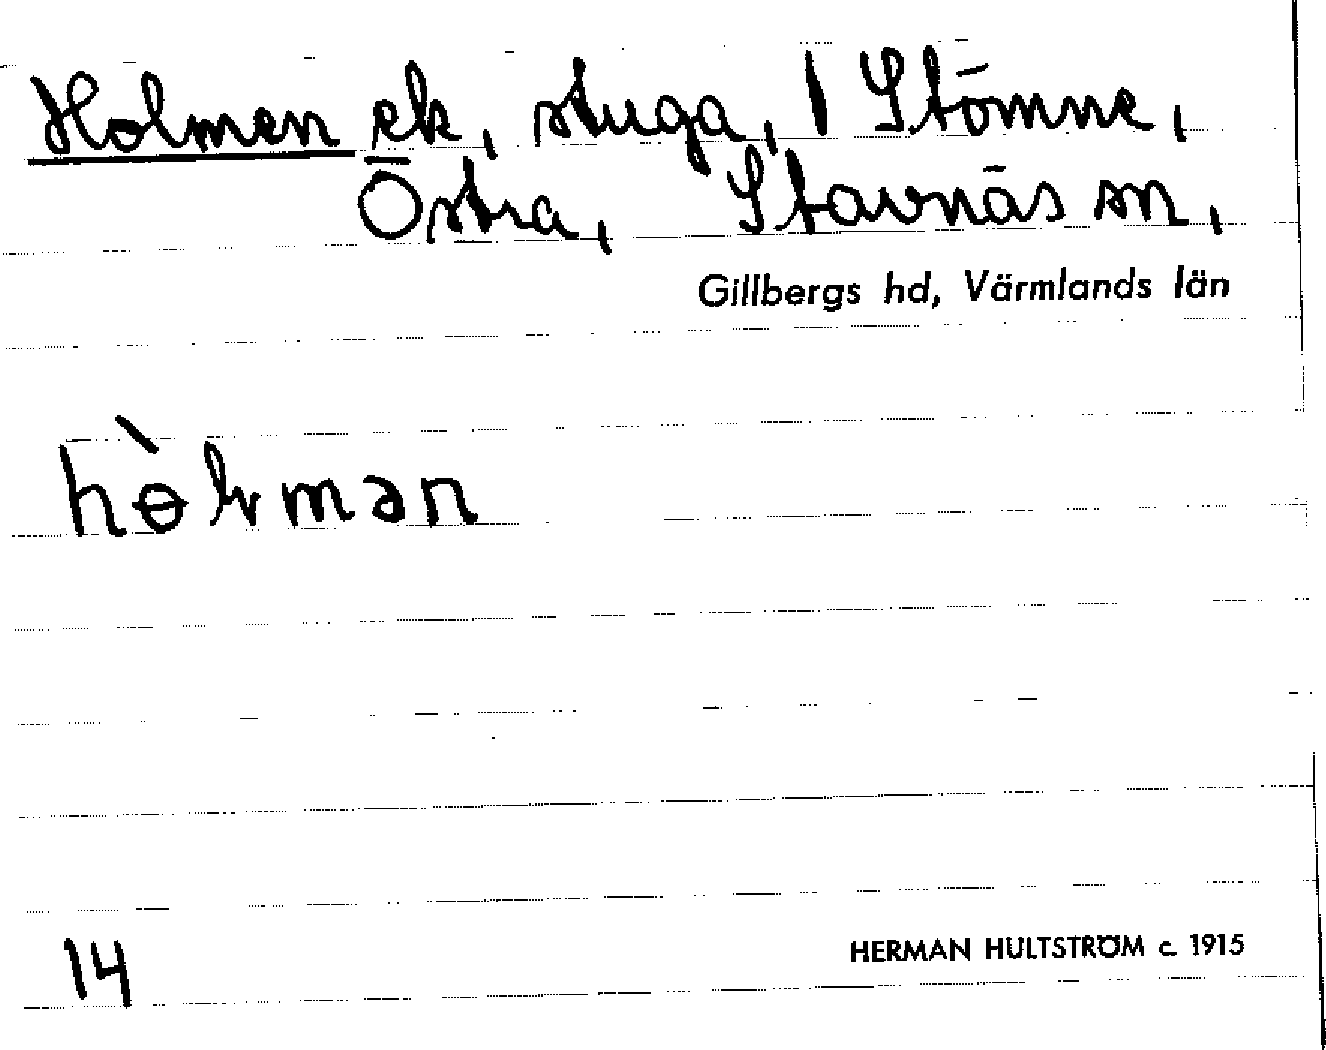 Holmen ek, stuga, 1 Stömne,
Östra, Stavnäs sn,
Gillbergs hd, Värmlands län
hɵ̀lmən
14
HERMAN HULTSTRÖM c. 1915